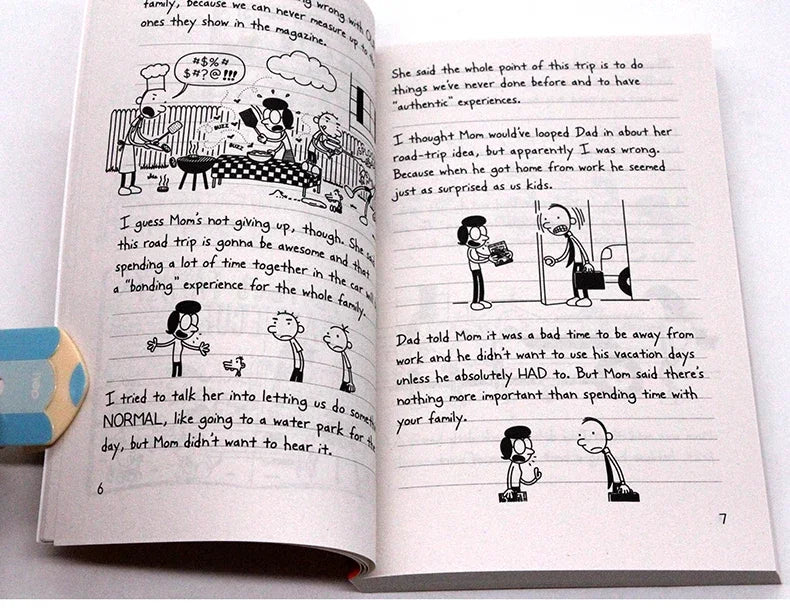 family, because we can never measure up to
ones they show in the magazine.
#$%#
$#?@!!!
BUZZ
BUZZ
I guess Mom's not giving up, though. She
this road trip is gonna be awesome and that
spending a lot of time together in the car
a "bonding" experience for the whole family.
I tried to talk her into letting us do
NORMAL, like going to a water park for the
day, but Mom didn't want to hear it.
6
She said the whole point of this trip is to do
things we've never done before and to have
"authentic" experiences.
I thought Mom would've looped Dad in about her
road-trip idea, but apparently I was wrong.
Because when he got home from work he seemed
just as surprised as us kids.
Dad told Mom it was a bad time to be away from
work and he didn't want to use his vacation days
unless he absolutely HAD to. But Mom said there's
nothing more important than spending time with
your family.
7
deli